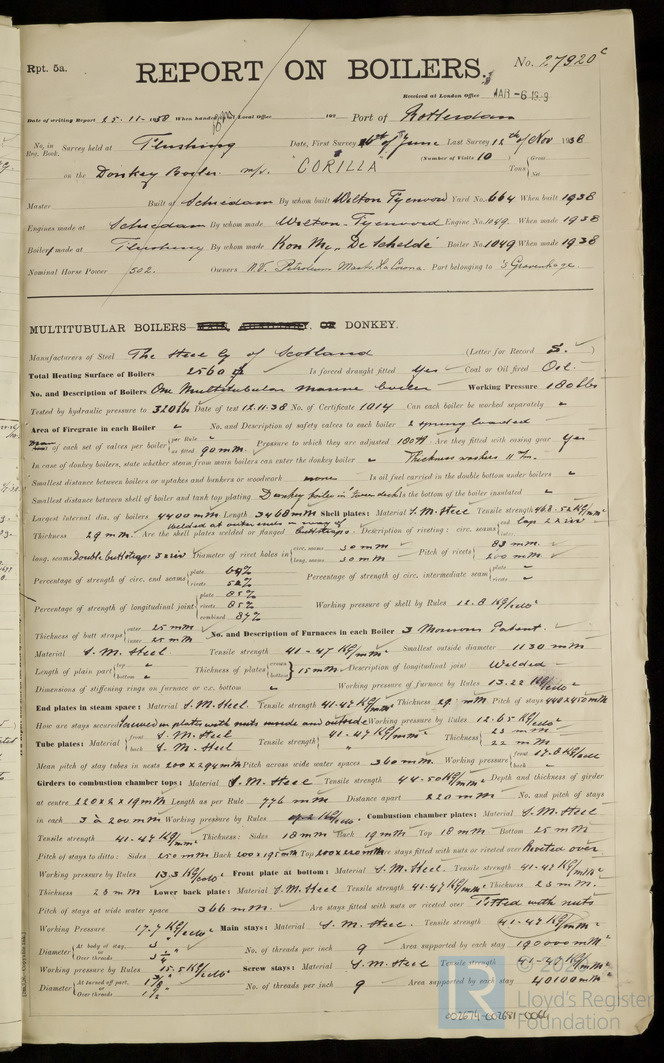 Rpt. 5a.
REPORT ON BOILERS.
No. 27920 c
Received at London Office
Date of writing Report 25-11-1938 When handed in at Local Office Port of Rotterdam
No. in Reg. Book. Survey held at Flushing Date, First Survey June Last Survey 12th of Nov 1938
on the Donkey Boiler m/s. "CORILLA" (Number of Visits 10) Tons Gross Net
Master Built at Schiedam By whom built Wilton Fyenoord Yard No. 664 When built 1938
Engines made at Schiedam By whom made Wilton-Fyenoord Engine No. 1049 When made 1938
Boiler made at Flushing By whom made Kon My. "De Schelde" Boiler No. 1049 When made 1938
Nominal Horse Power 502. Owners N.V. Petroleum Maats. La Corona. Port belonging to 's Gravenhage.
MULTITUBULAR BOILERS— OR DONKEY.
Manufacturers of Steel The Steel Cy of Scotland (Letter for Record S.)
Total Heating Surface of Boilers 2560 Is forced draught fitted Yes Coal or Oil fired Oil.
No. and Description of Boilers One Multitubular marine boiler Working Pressure 180 lbs
Tested by hydraulic pressure to 320 lbs Date of test 12.11.38 No. of Certificate 1014 Can each boiler be worked separately "
Area of Firegrate in each Boiler " No. and Description of safety valves to each boiler 2 spring loaded
of each set of valves per boiler per Rule as fitted 90 mm. Pressure to which they are adjusted Are they fitted with easing gear Yes
In case of donkey boilers, state whether steam from main boilers can enter the donkey boiler "
Smallest distance between boilers or uptakes and bunkers or woodwork none Is oil fuel carried in the double bottom under boilers "
Smallest distance between shell of boiler and tank top plating Donkey boiler in tween deck Is the bottom of the boiler insulated "
Largest internal dia. of boilers 4400 mm Length 3468 mm Shell plates: Material S.M. Steel Tensile strength 46.8-52 KG/mm²
Welded at outer ends in way of buttstraps
Thickness 29 mm. Are the shell plates welded or flanged Description of riveting: circ. seams end lap 2 x riv
long. seams Double buttstraps 3xriv Diameter of rivet holes in circ. seams 30 mm long. seams 30 mm Pitch of rivets 83 mm. 200 mm
Percentage of strength of circ. end seams plate rivets 52% Percentage of strength of circ. intermediate seam plate rivets "
Percentage of strength of longitudinal joint plate 85% rivets 85% combined 87% Working pressure of shell by Rules 12.8 KG/cm²
Thickness of butt straps outer 25 mm inner 25 mm No. and Description of Furnaces in each Boiler 3 Morrisons Patent.
Material S.M. Steel Tensile strength 41-47 KG/mm² Smallest outside diameter 1130 mm
Length of plain part top bottom Thickness of plates crown bottom 15 mm Description of longitudinal joint Welded
Dimensions of stiffening rings on furnace or c.c. bottom " Working pressure of furnace by Rules 13.22 KG/cm²
End plates in steam space: Material S.M. Steel Tensile strength 41-47 KG/mm² Thickness 29 mm Pitch of stays 440x450 mm
How are stays secured Screwed in plates with nuts inside and outside Working pressure by Rules 12.65 KG/cm²
Tube plates: Material front S.M. Steel back S.M. Steel Tensile strength 41-47 KG/mm² " Thickness 23 mm 22 mm
Mean pitch of stay tubes in nests 200x294 mm Pitch across wide water spaces 360 mm. Working pressure front 17.8 KG/cm² back
Girders to combustion chamber tops: Material S.M. Steel Tensile strength 44-50 KG/mm² Depth and thickness of girder
at centre 220x2x19 mm Length as per Rule 776 mm Distance apart 220 mm No. and pitch of stays
in each 3 à 200 mm Working pressure by Rules Combustion chamber plates: Material S.M. Steel
Tensile strength 41-47 KG/mm² Thickness: Sides 18 mm Back 19 mm Top 18 mm Bottom 25 mm
Pitch of stays to ditto: Sides 250 mm Back 200x195 mm Top 200x220 mm Are stays fitted with nuts or riveted over Riveted over
Working pressure by Rules 13.3 KG/cm² Front plate at bottom: Material S.M. Steel. Tensile strength 41-47 KG/mm²
Thickness 23 mm Lower back plate: Material S.M. Steel Tensile strength 41-47 KG/mm² Thickness 23 mm.
Pitch of stays at wide water space 366 mm. Are stays fitted with nuts or riveted over Fitted with nuts
Working Pressure 17.7 KG/cm² Main stays: Material S.M. Steel. Tensile strength 41-47 KG/mm²
Diameter At body of stay, Over threads No. of threads per inch 9 Area supported by each stay 190000 mm²
Working pressure by Rules 15.5 KG/cm² Screw stays: Material S.M. Steel Tensile strength 41-47 KG/mm²
Diameter At turned off part, or Over threads No. of threads per inch 9 Area supported by each stay 40100 mm²
Lloyd's Register
Foundation
002674-002681-0064